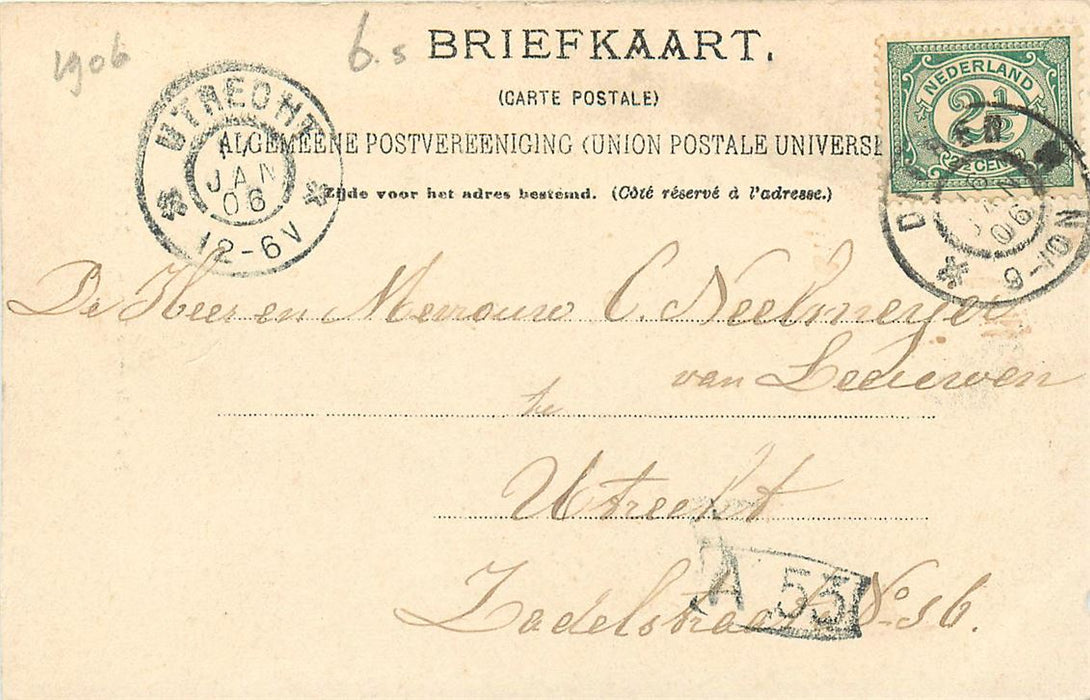 1906
6.s
BRIEFKAART.
(CARTE POSTALE)
ALGEMEENE POSTVEREENIGING (UNION POSTALE UNIVERSE
Zijde voor het adres bestemd. (Côté réservé à l'adresse.)
UTRECHT
17
JAN
06
12-6V
NEDERLAND
2½
2½ CENT
JAN
06
9-10N
De Heer en Mevrouw C. Neelmeyer
van Leeuwen
te
Utrecht
Zadelstraat No. 36.
A 55